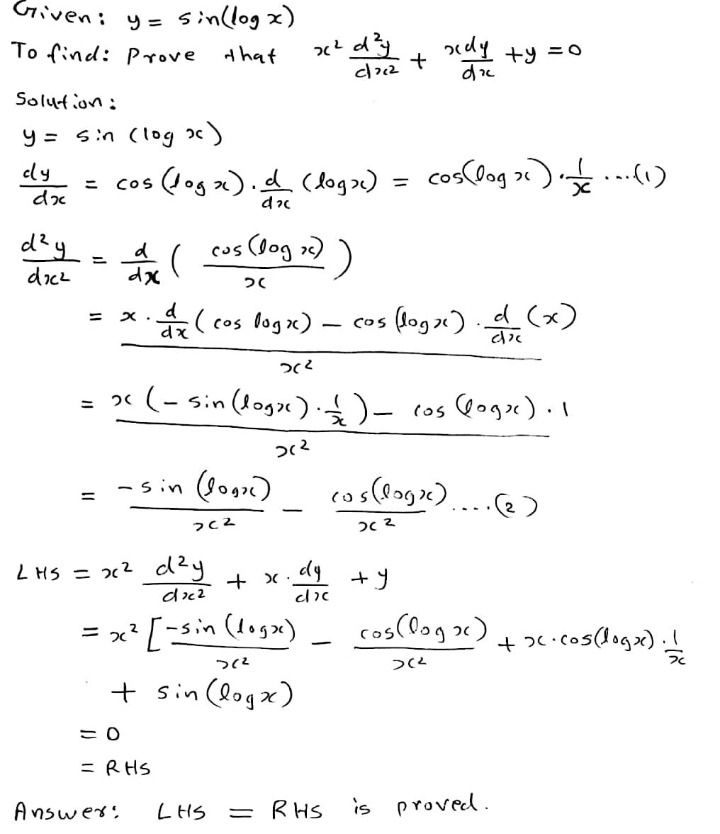 Given: y = sin(log x)
To find: Prove that x² d²y/dx² + xdy/dx + y = 0
Solution:
y = sin (log x)
dy/dx = cos (log x) . d/dx (log x) = cos(log x) . 1/x ...(1)
d²y/dx² = d/dx ( cos (log x) / x )
= x . d/dx ( cos log x) – cos (log x) . d/dx (x) / x²
= x ( – sin (log x) . 1/x ) – cos (log x) . 1 / x²
= – sin (log x) / x² – cos (log x) / x² ....(2)
LHS = x² d²y/dx² + x . dy/dx + y
= x² [ – sin (log x) / x² – cos(log x) / x² + x . cos(log x) . 1/x
+ sin (log x)
= 0
= RHS
Answer: LHS = RHS is proved.